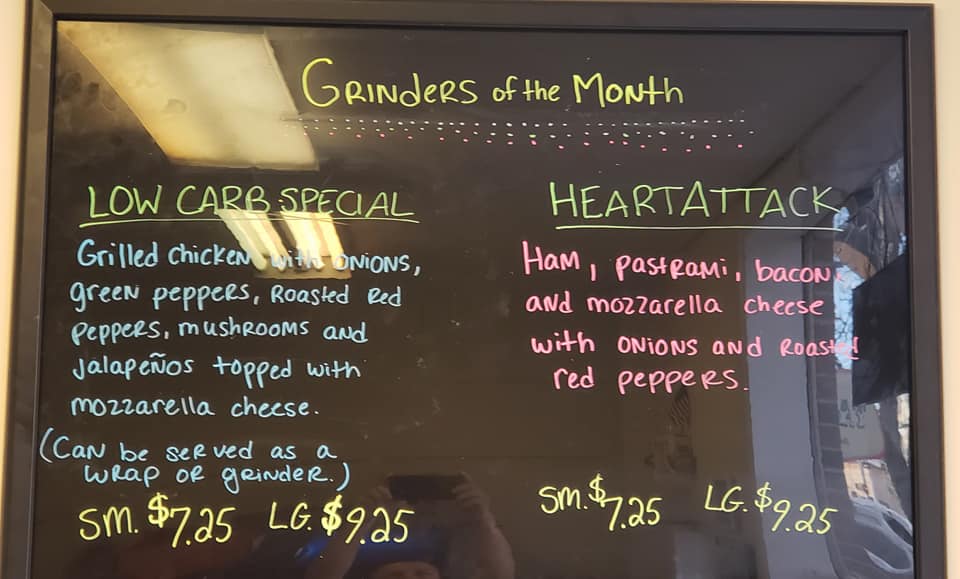 Grinders of the Month
LOW CARB SPECIAL
Grilled chicken with onions,
green peppers, Roasted Red
peppers, mushrooms and
jalapeños topped with
mozzarella cheese.
(Can be served as a
wrap or grinder.)
SM. $7.25 LG. $9.25
HEARTATTACK
Ham, pastrami, bacon,
and mozzarella cheese
with onions and Roasted
red peppers.
SM. $7.25 LG. $9.25